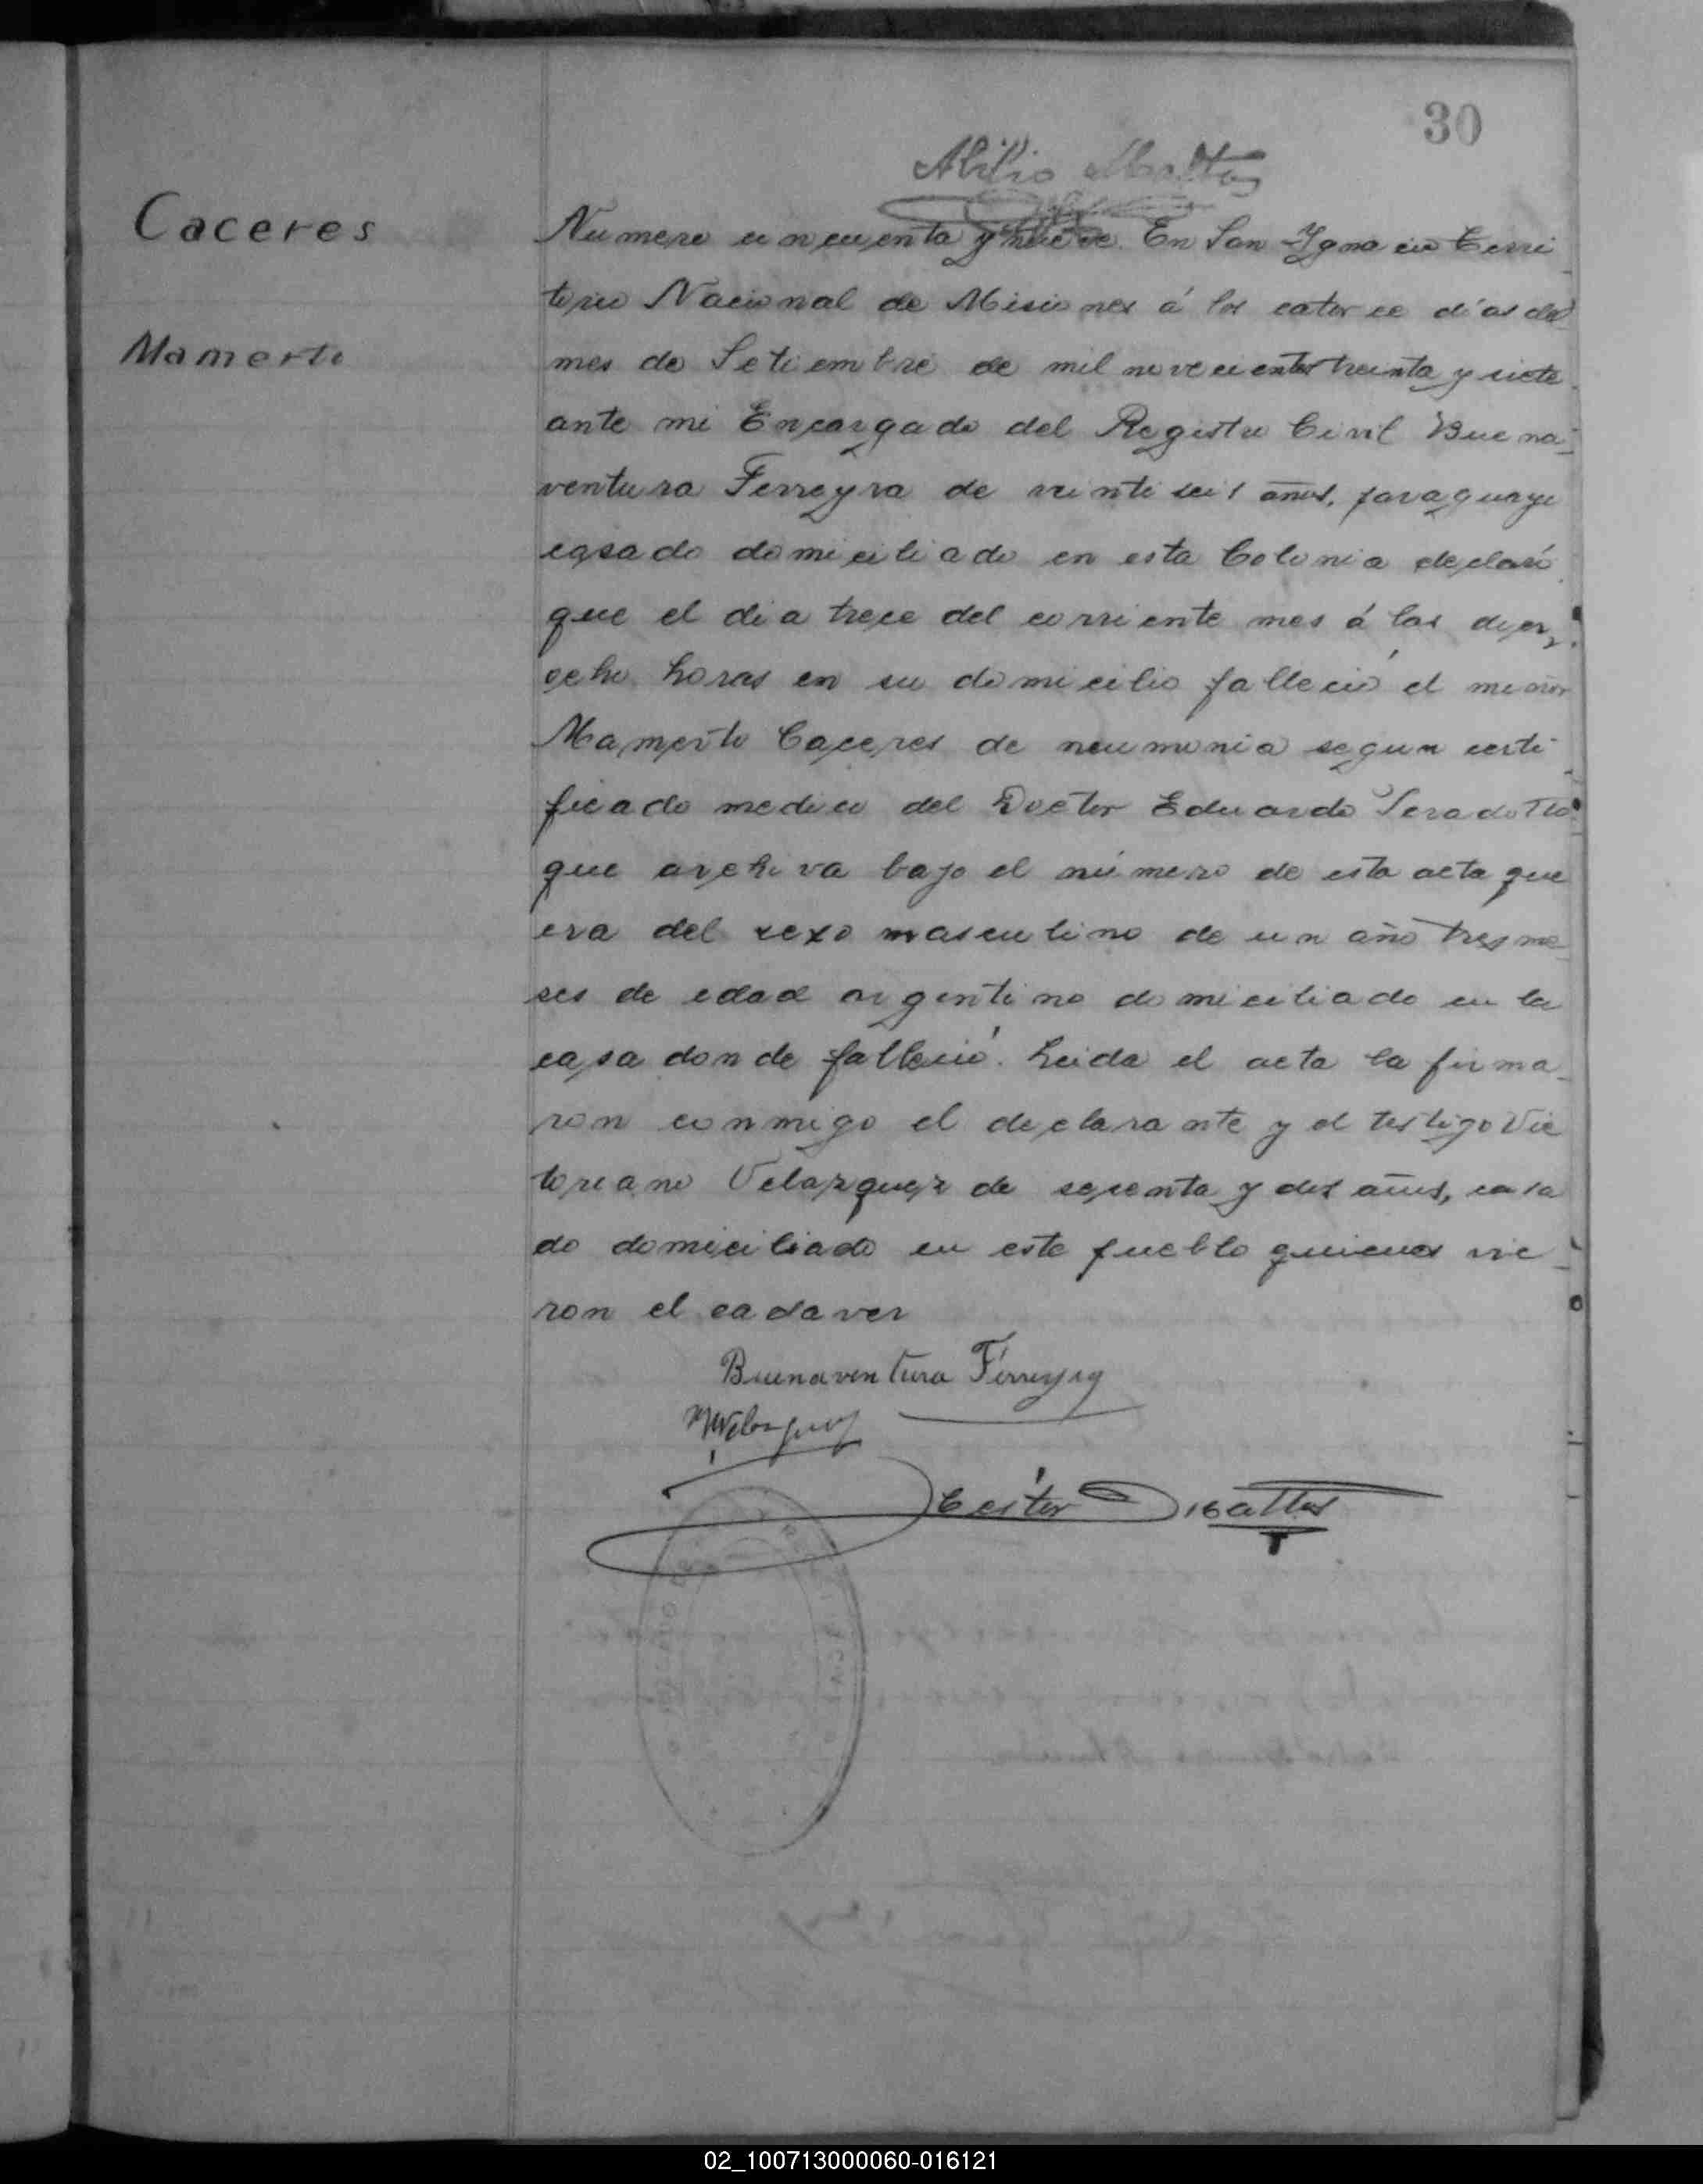 30
Abilio Mattos
Caceres
Mamerto
Numero cincuenta y nueve. En San Ygnacio Terri
torio Nacional de Misiones á los catorce días del
mes de Setiembre de mil novecientos treinta y siete
ante mi Encargado del Registro Civil Buena
ventura Ferreyra de veinti seis años, paraguayo
casado domiciliado en esta Colonia declaró
que el dia trece del corriente mes á las diez y
ocho horas en su domicilio falleció el menor
Mamerto Caceres de neumonia segun certi
ficado medico del Doctor Eduardo
que archiva bajo el número de esta acta que
era del sexo masculino de un año tres me
ses de edad argentino domiciliado en la
casa donde falleció. Leida el acta la firma
ron conmigo el declarante y el testigo Vic
toriano Velazquez de sesenta y dos años, casa
do domiciliado en este pueblo quienes vie
ron el cadaver
Buenaventura Ferreyra
Velazquez
02_100713000060-016121